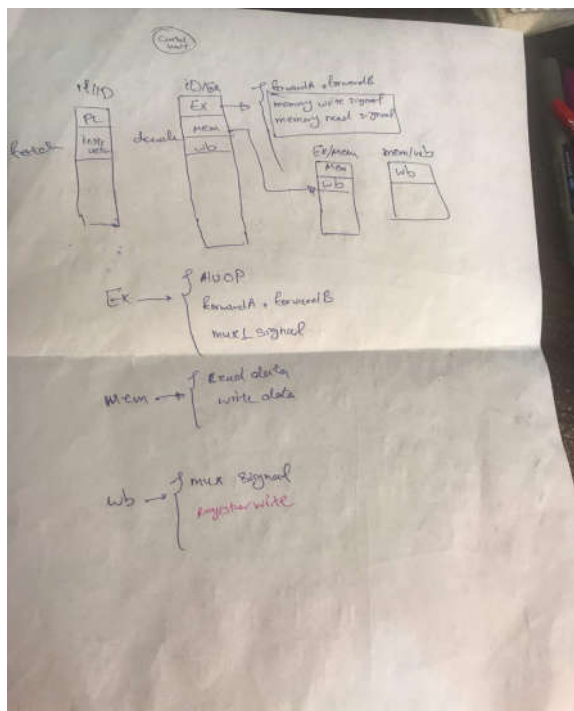 Control
unit
if/ID
ID/Ex
PC
fetch
decode
Ex
mem
wb
forwardA, forwardB
memory write signal
memory read signal
Ex/Mem
mem/wb
Mem
wb
wb
Ex
ALUOP
forwardA, forwardB
mux1 signal
Mem
Read data
write data
wb
mux signal
Register write